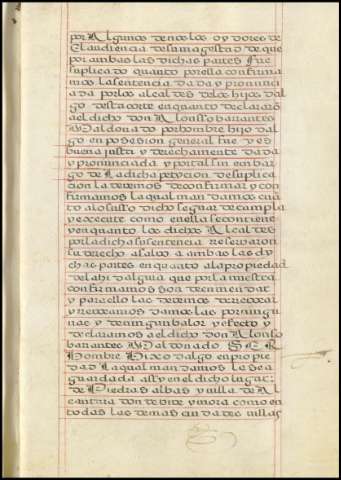 por Algunos de nos los oydores de
la audiencia de su magestad de que
por ambas las dichas partes fue
suplicado quanto por ella confirma
mos la sentencia dada y pronuncia
da por los alcaldes de los hijos dal
go desta corte en quanto declararon
al dicho don Alonsso barantes
Maldonado por hombre hijo dal
go en posesion general fue y es
buena justa y derechamente dada
y pronunciada y por tal sin embar
go de la dicha petycion de suplica
cion la devemos de confirmar y con
firmamos la qual mandamos cun
to a lo susso dicho se guarde cumpla
y execute como en ella se contiene
y en quanto los dichos Alcaldes
por la dicha su sentencia reservaron
su derecho a salvo a ambas las dy
chas partes en quanto a la propiedad
del ahidalguia que por la nuestra
confirmamos son de enmendar
y para ello las devemos de revocar
y revocamos damos las por ningu
nas y de ningun balor y efecto y
declaramos al dicho don Alonso
barantes Maldonado SER
Hombre Hixo dalgo en propie
dad la qual mandamos le sea
guardada assy en el dicho lugar
de Piedras albas y villa de Al
cantara donde bive y mora como en
todas las demas ciudades villas